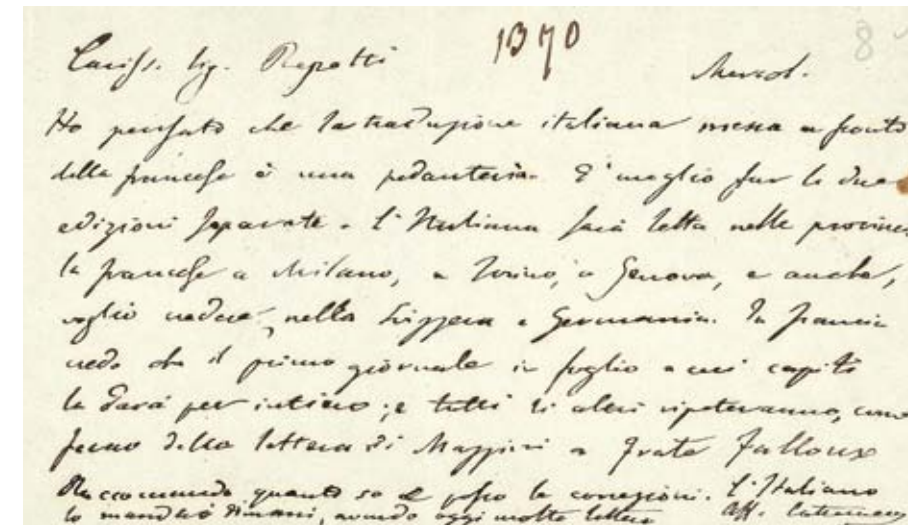 1370
8
Cariss. Sig. Repetti
Mercol.
Ho pensato che la traduzione italiana messa a fronte
della francese è una pedanteria. E' meglio far le due
edizioni separate. L'Italiana sarà letta nelle province
la francese a Milano, a Torino, a Genova, e anche,
voglio credere, nella Svizzera e Germania. In Francia
credo che il primo giornale in foglio a cui capiti
la darà per intiero; e tutti li altri ripeteranno, come
fecero della lettera di Mazzini a Frate Falloux
Raccomando quanto so e posso le correzioni. L'Italiano
lo manderò dimani, avendo oggi molte lettere
aff. Cattaneo